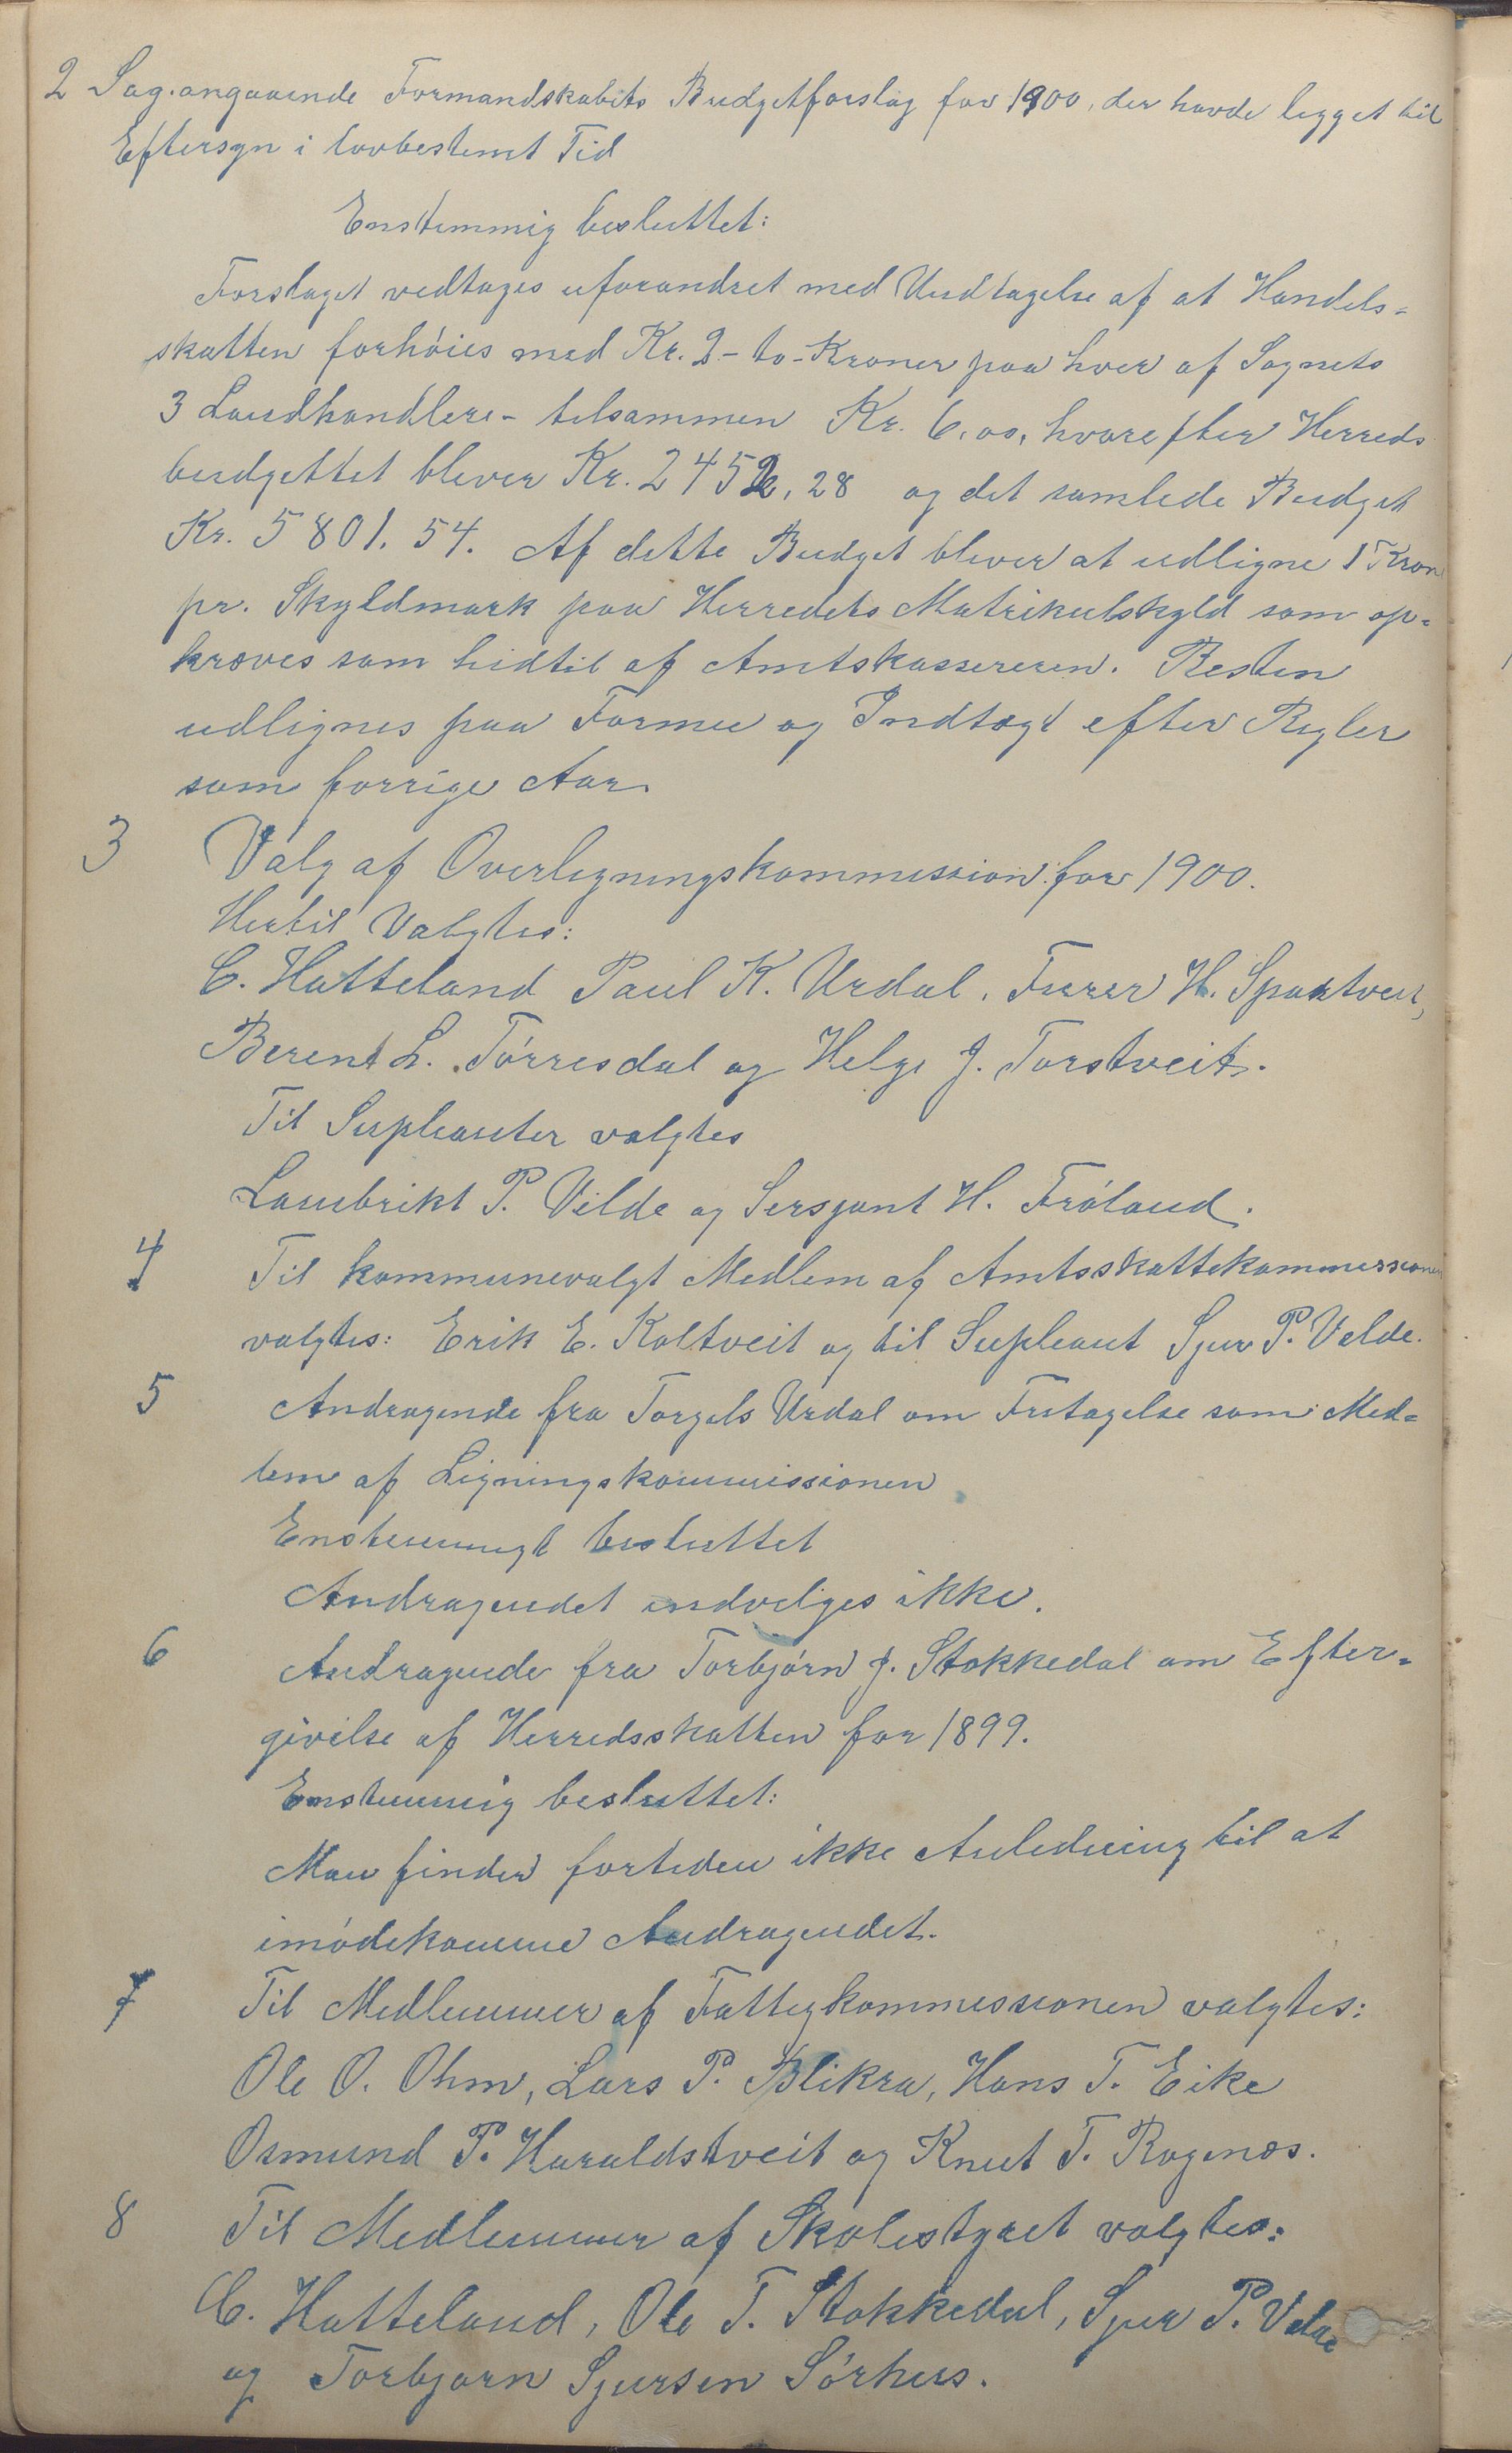 2 Sag angaaende Formandskabets Budgetforslag for 1900, der havde legget til
Eftersyn i lovbestemt Tid
Enstemmig besluttet:
Forslaget vedtages uforandret med Undtagelse af at Handels=
skatten forhöies med Kr. 2 - to - Kroner paa hver af Sognets
3 Landhandlere - tilsammen Kr. 6,00, hvorefter Herreds
budgettet bliver Kr. 2452,28 og det samlede Budget
Kr. 5801.54. Af dette Budget bliver at udligne 1 Kron
pr. Skyldmark paa Herredets Matrikulskyld som op=
kræves som hidtil af Amtskassereren. Resten
udlignes paa Formue og Indtægt efter Regler
som forrige Aar.
3 Valg af Overligningskommission for 1900.
Hertil Valgtes:
C. Hatteland Paul K. Urdal, Furer H. Spaktveit,
Berent L. Törresdal og Helge J. Torstveit.
Til Supleanter valgtes
Lambrikt P. Velde og Sersjant H. Fröland.
4 Til kommunevalgt Medlem af Amtsskattekommissionen
valgtes: Erik E. Koltveit og til Supleant Sjur P. Velde.
5 Andragende fra Torgels Urdal om Fritagelse som Med=
lem af Ligningskommissionen
Enstemmigt besluttet
Andragendet indvelges ikke.
6 Andragende fra Torbjörn J. Stokkedal om Efter=
givelse af Herredsskatten for 1899.
Enstemmig besluttet:
Man finder fortiden ikke Anledning til at
imödekomme Andragendet.
7 Til Medlemmer af Fattigkommissionen valgtes:
Ole O. Ohm, Lars P. Blikra, Hans T. Eike
Osmund P. Haraldstveit og Knut T. Rogenæs.
8 Til Medlemmer af Skolestyret valgtes:
C. Hatteland, Ole T. Stokkedal, Sjur P. Velde
og Torbjørn Sjursen Sörhus.